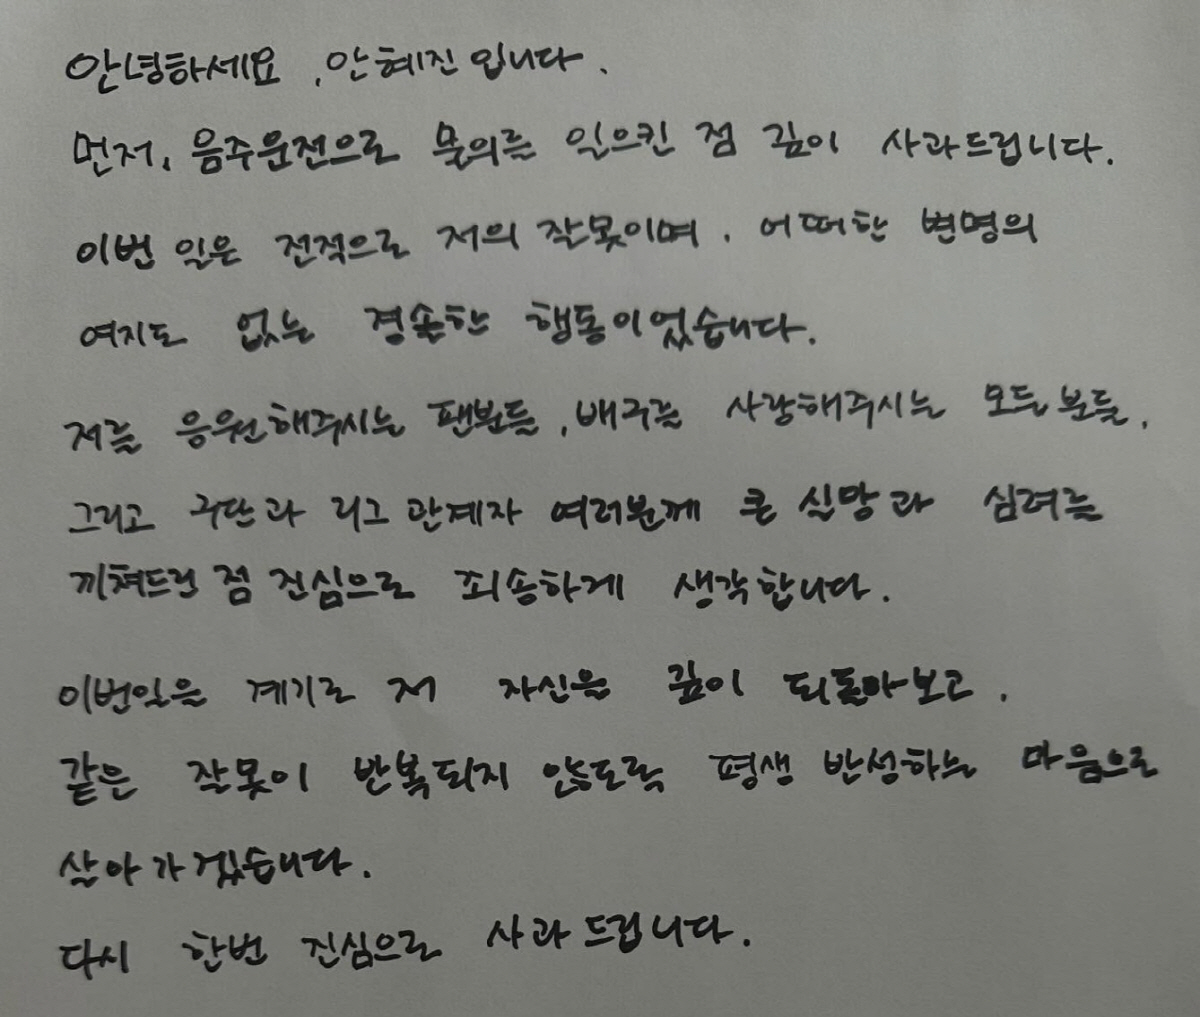 안녕하세요, 안혜진입니다.
먼저, 음주운전으로 물의를 일으킨 점 깊이 사과드립니다.
이번 일은 전적으로 저의 잘못이며, 어떠한 변명의
여지도 없는 경솔한 행동이었습니다.
저를 응원해주시는 팬분들, 배구를 사랑해주시는 모든분들,
그리고 구단과 리그 관계자 여러분께 큰 실망과 심려를
끼쳐드린 점 진심으로 죄송하게 생각합니다.
이번일을 계기로 저 자신을 깊이 되돌아보고,
같은 잘못이 반복되지 않도록 평생 반성하는 마음으로
살아가겠습니다.
다시 한번 진심으로 사과드립니다.